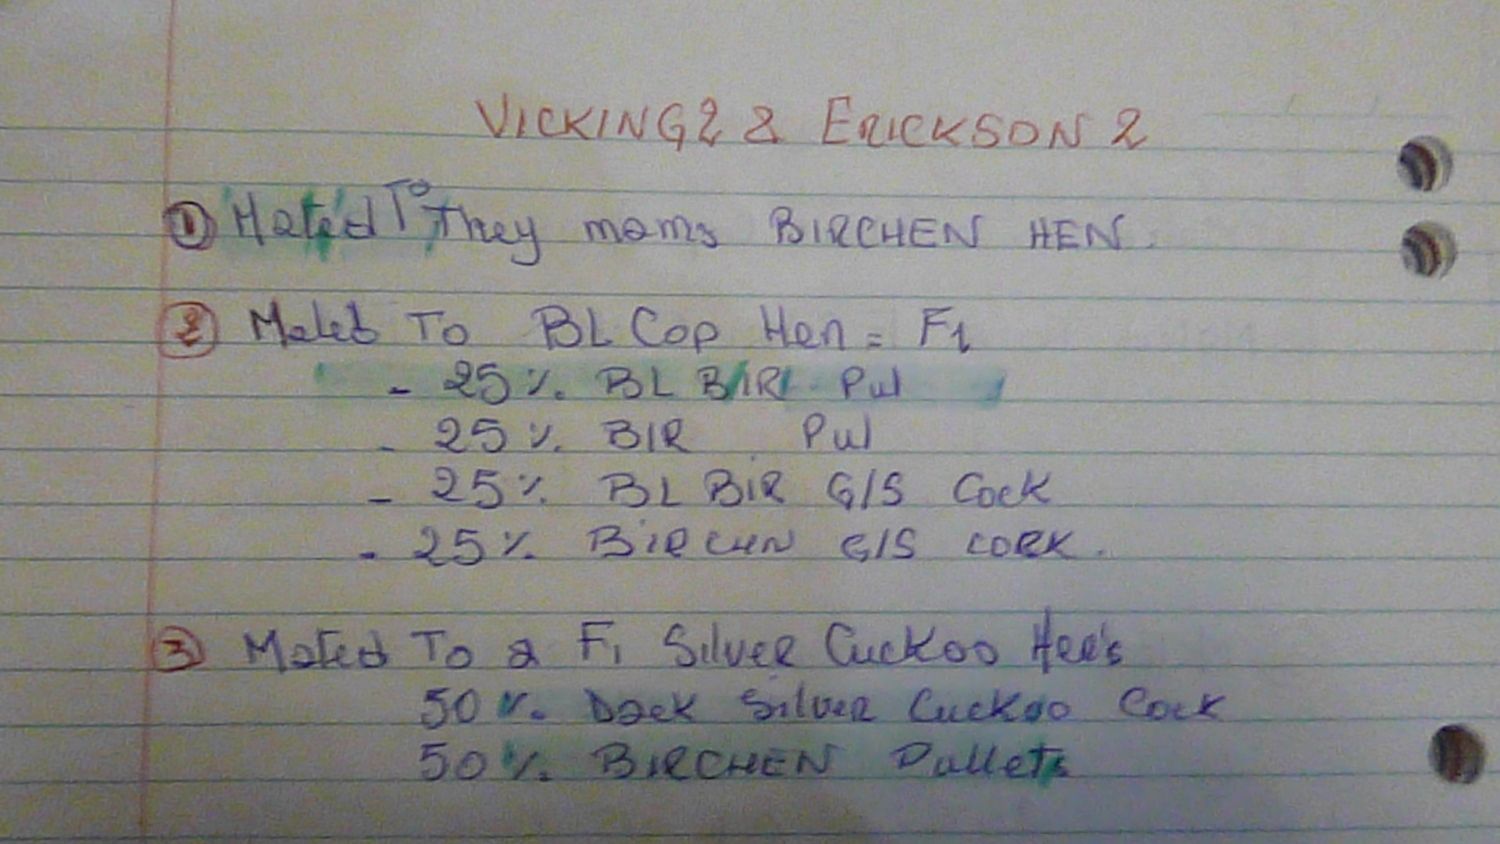 VICKING 2 & ERICKSON 2
① Mated To They moms BIRCHEN HEN.
② Mated To BL Cop Hen = F1
- 25 %. BL BIR Pul
- 25 %. BIR Pul
- 25 %. BL BIR G/S Cock
- 25 %. BIRCHN G/S COCK.
③ Mated To a F1 Silver Cuckoo Hen's
50 %. Dack Silver Cuckoo Cock
50 %. BIRCHEN Pullets